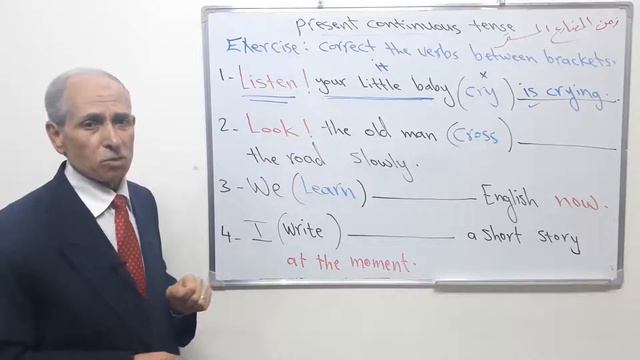 present continuous tense زمن المضارع المستمر
Exercise: correct the verbs between brackets.
it x
1- Listen! your little baby (cry) is crying.
2- Look! the old man (cross) ________
the road slowly.
3- We (Learn) ________ English now.
4- I (write) ________ a short story
at the moment.